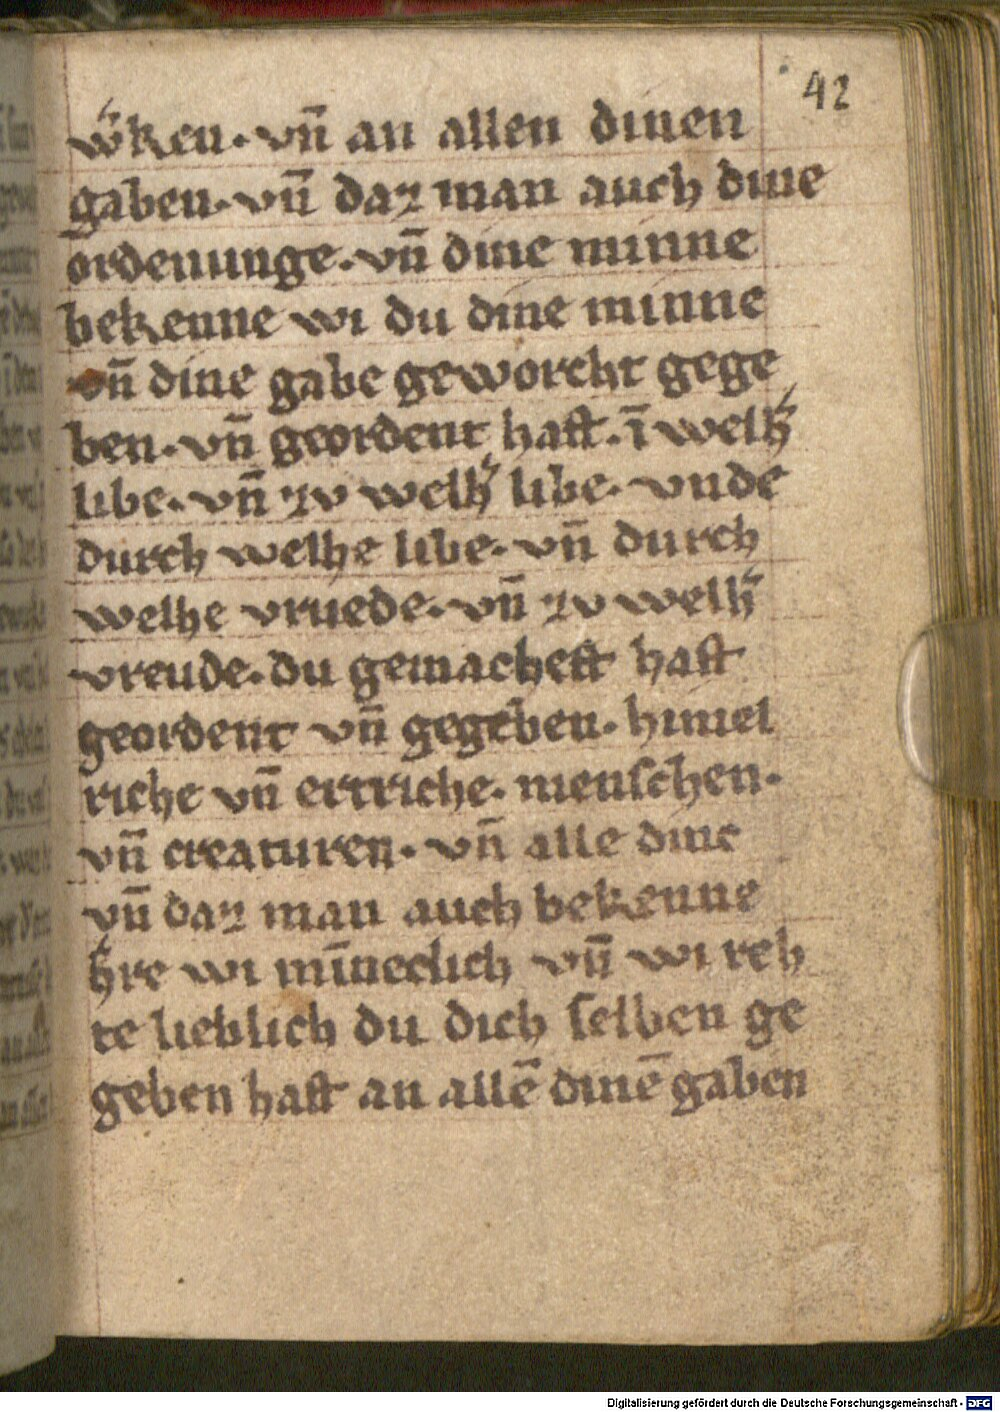 42
w̓ken · vn̄ an allen dinen
gaben · vn̄ daz man auch dine
ordenunge · vn̄ dine minne
bekenne wi du dine minne
vn̄ dine gabe geworcht gege
ben · vn̄ geordent haſt · ī welh̓
libe · vn̄ zv welh̓ libe · vnde
durch welhe libe · vn̄ durch
welhe vruede · vn̄ zv welh̓
vreude · du gemacheſt haſt
geordent vn̄ gegeben · himel
riche vn̄ ertriche · menſchen ·
vn̄ creaturen · vn̄ alle dinc
vn̄ daz man auch bekenne
h̓re wi mīneclich vn̄ wi reh
te lieblich du dich ſelben ge
geben haſt an allē dinē gaben
Digitalisierung gefördert durch die Deutsche Forschungsgemeinschaft - DFG